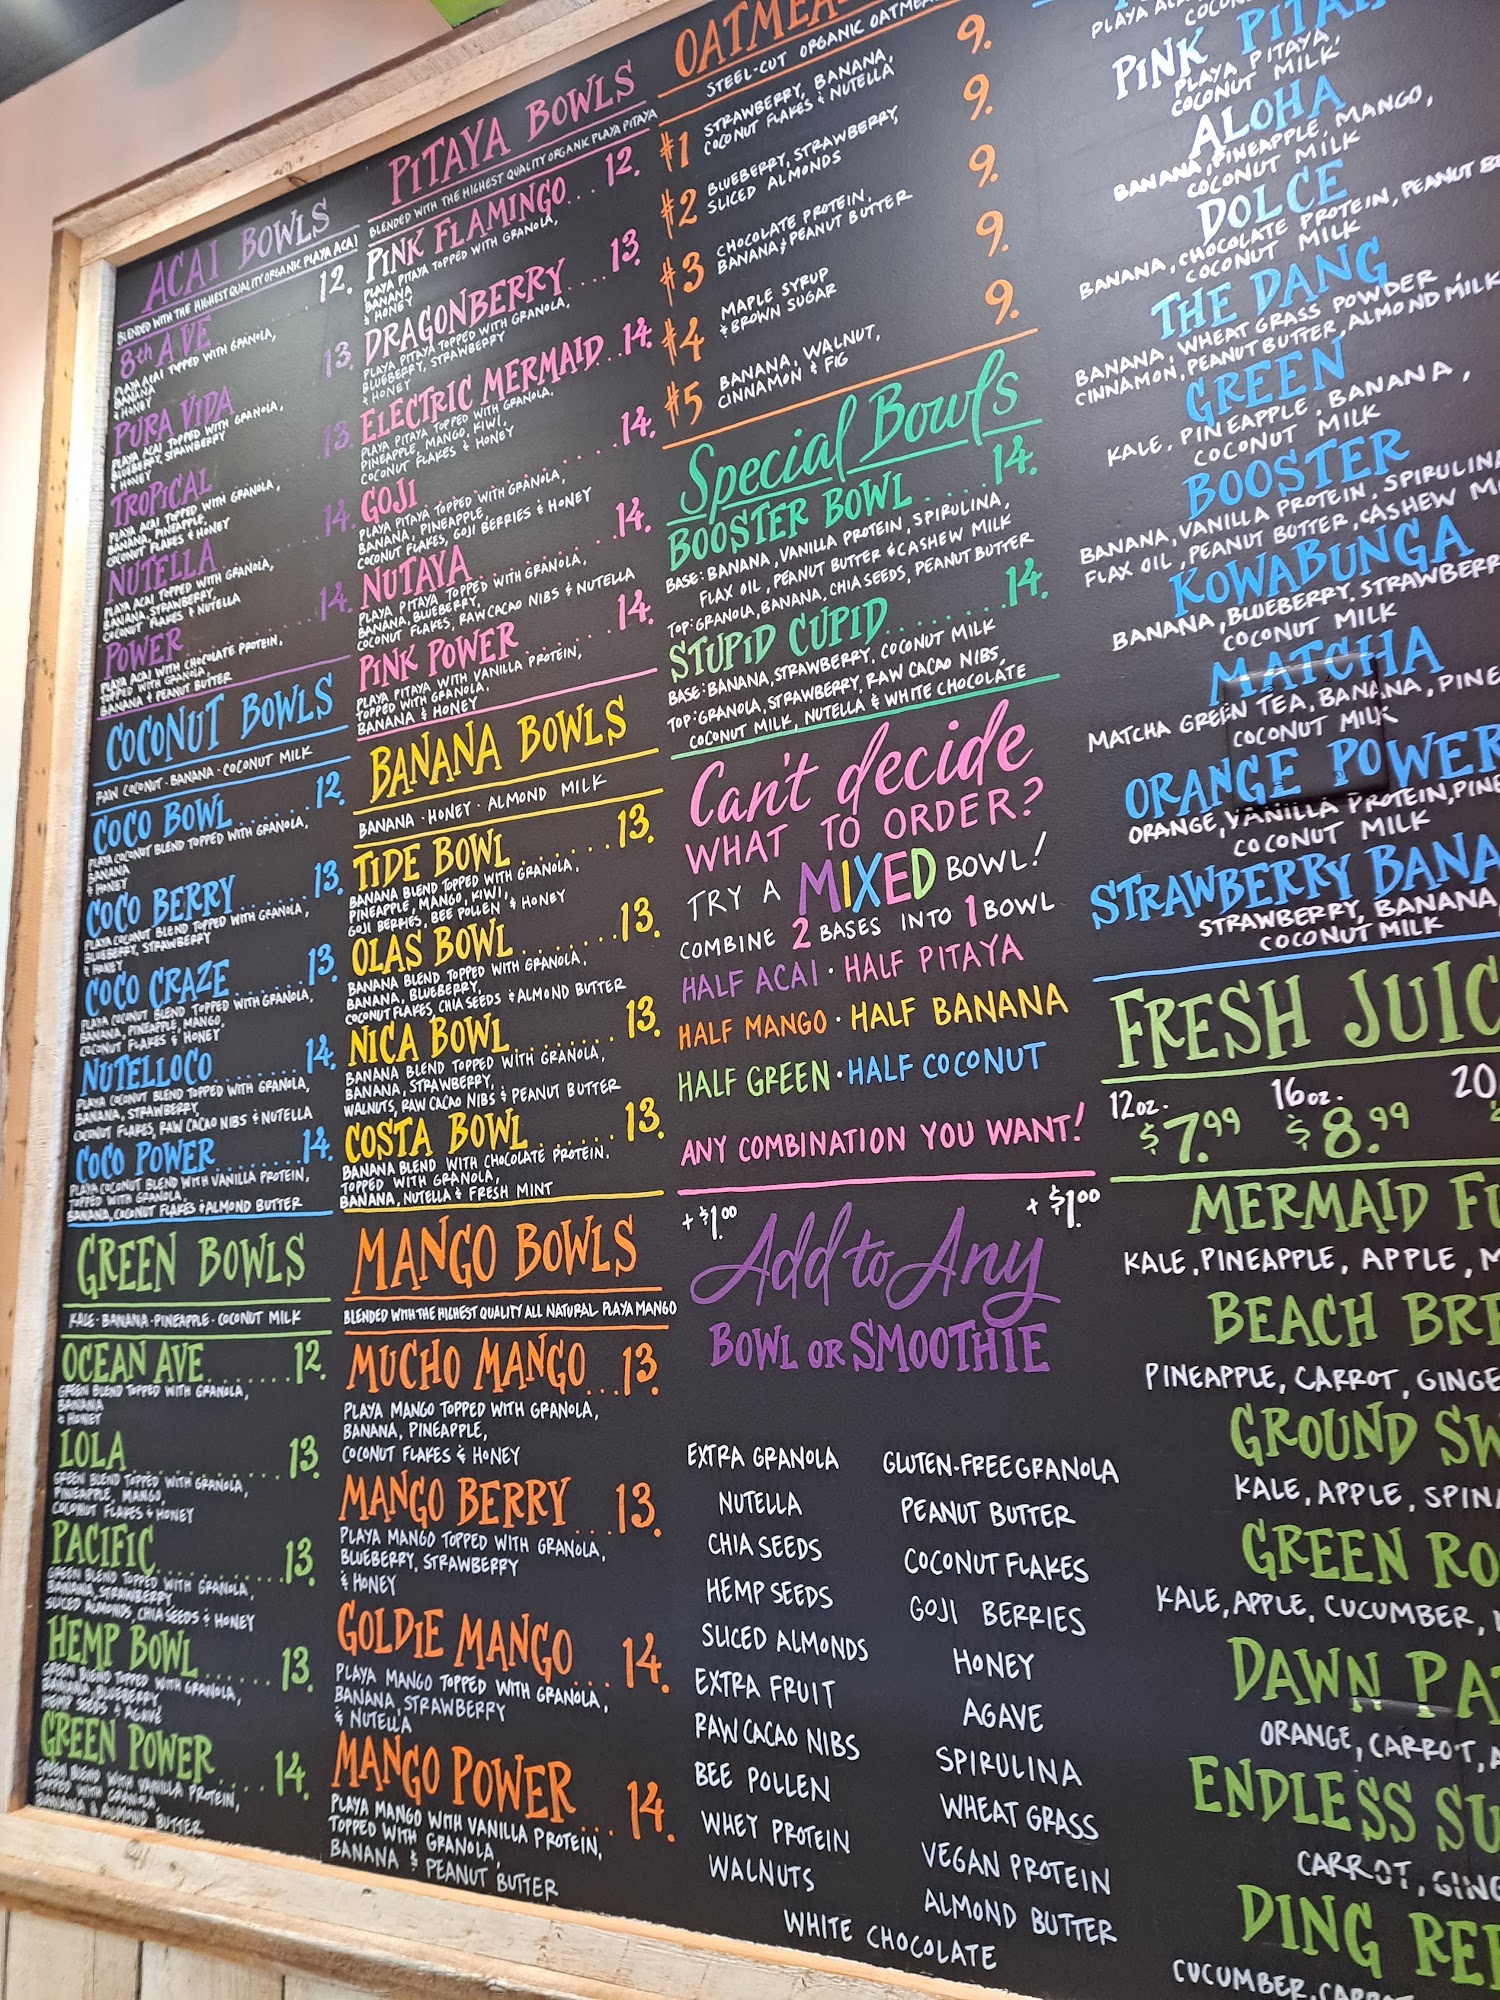 ACAI BOWLS
BLENDED WITH THE HIGHEST QUALITY ORGANIC PLAYA ACAI
8th AVE 12.
PLAYA ACAI TOPPED WITH GRANOLA,
BANANA
& HONEY
PURA VIDA 13.
PLAYA ACAI TOPPED WITH GRANOLA,
BLUEBERRY, STRAWBERRY
& HONEY
TROPICAL 13.
PLAYA ACAI TOPPED WITH GRANOLA,
BANANA, PINEAPPLE,
COCONUT FLAKES & HONEY
NUTELLA 14.
PLAYA ACAI TOPPED WITH GRANOLA,
BANANA, STRAWBERRY,
COCONUT FLAKES & NUTELLA
POWER 14.
PLAYA ACAI WITH CHOCOLATE PROTEIN,
TOPPED WITH GRANOLA,
BANANA & PEANUT BUTTER
COCONUT BOWLS
RAW COCONUT - BANANA - COCONUT MILK
COCO BOWL......12.
PLAYA COCONUT BLEND TOPPED WITH GRANOLA,
BANANA
& HONEY
COCO BERRY......13.
PLAYA COCONUT BLEND TOPPED WITH GRANOLA,
BLUEBERRY, STRAWBERRY
& HONEY
COCO CRAZE......13.
PLAYA COCONUT BLEND TOPPED WITH GRANOLA,
BANANA, PINEAPPLE, MANGO,
COCONUT FLAKES & HONEY
NUTELLOCO......14.
PLAYA COCONUT BLEND TOPPED WITH GRANOLA,
BANANA, STRAWBERRY,
COCONUT FLAKES, RAW CACAO NIBS & NUTELLA
COCO POWER........14.
PLAYA COCONUT BLEND WITH VANILLA PROTEIN,
TOPPED WITH GRANOLA,
BANANA, COCONUT FLAKES & ALMOND BUTTER
GREEN BOWLS
KALE - BANANA - PINEAPPLE - COCONUT MILK
OCEAN AVE.......12.
GREEN BLEND TOPPED WITH GRANOLA,
BANANA
& HONEY
LOLA............13.
GREEN BLEND TOPPED WITH GRANOLA,
PINEAPPLE, MANGO,
COCONUT FLAKES & HONEY
PACIFIC..........13.
GREEN BLEND TOPPED WITH GRANOLA,
BANANA, STRAWBERRY,
SLICED ALMONDS, CHIA SEEDS & HONEY
HEMP BOWL......13.
GREEN BLEND TOPPED WITH GRANOLA,
BANANA, BLUEBERRY,
HEMP SEEDS & AGAVE
GREEN POWER.....14.
GREEN BLEND WITH VANILLA PROTEIN,
TOPPED WITH GRANOLA,
BANANA & ALMOND BUTTER
PITAYA BOWLS
BLENDED WITH THE HIGHEST QUALITY ORGANIC PLAYA PITAYA
PINK FLAMINGO...12.
PLAYA PITAYA TOPPED WITH GRANOLA,
BANANA
& HONEY
DRAGONBERRY....13.
PLAYA PITAYA TOPPED WITH GRANOLA,
BLUEBERRY, STRAWBERRY
& HONEY
ELECTRIC MERMAID..14.
PLAYA PITAYA TOPPED WITH GRANOLA,
PINEAPPLE, MANGO, KIWI,
COCONUT FLAKES & HONEY
GOJI............14.
PLAYA PITAYA TOPPED WITH GRANOLA,
BANANA, PINEAPPLE,
COCONUT FLAKES, GOJI BERRIES & HONEY
NUTAYA..........14.
PLAYA PITAYA TOPPED WITH GRANOLA,
BANANA, BLUEBERRY,
COCONUT FLAKES, RAW CACAO NIBS & NUTELLA
PINK POWER......14.
PLAYA PITAYA WITH VANILLA PROTEIN,
TOPPED WITH GRANOLA,
BANANA & HONEY
BANANA BOWLS
BANANA - HONEY - ALMOND MILK
TIDE BOWL.......13.
BANANA BLEND TOPPED WITH GRANOLA,
PINEAPPLE, MANGO, KIWI,
GOJI BERRIES, BEE POLLEN & HONEY
OLAS BOWL.......13.
BANANA BLEND TOPPED WITH GRANOLA,
BANANA, BLUEBERRY,
COCONUT FLAKES, CHIA SEEDS & ALMOND BUTTER
NICA BOWL.......13.
BANANA BLEND TOPPED WITH GRANOLA,
BANANA, STRAWBERRY,
WALNUTS, RAW CACAO NIBS & PEANUT BUTTER
COSTA BOWL......13.
BANANA BLEND WITH CHOCOLATE PROTEIN,
TOPPED WITH GRANOLA,
BANANA, NUTELLA & FRESH MINT
MANGO BOWLS
BLENDED WITH THE HIGHEST QUALITY ALL NATURAL PLAYA MANGO
MUCHO MANGO...13.
PLAYA MANGO TOPPED WITH GRANOLA,
BANANA, PINEAPPLE,
COCONUT FLAKES & HONEY
MANGO BERRY....13.
PLAYA MANGO TOPPED WITH GRANOLA,
BLUEBERRY, STRAWBERRY
& HONEY
GOLDIE MANGO...14.
PLAYA MANGO TOPPED WITH GRANOLA,
BANANA, STRAWBERRY
& NUTELLA
MANGO POWER...14.
PLAYA MANGO WITH VANILLA PROTEIN,
TOPPED WITH GRANOLA,
BANANA & PEANUT BUTTER
STEEL-CUT ORGANIC
#1 STRAWBERRY, BANANA, 9.
COCONUT FLAKES & NUTELLA
#2 BLUEBERRY, STRAWBERRY, 9.
SLICED ALMONDS
#3 CHOCOLATE PROTEIN, 9.
BANANA & PEANUT BUTTER
#4 MAPLE SYRUP 9.
& BROWN SUGAR
#5 BANANA, WALNUT, 9.
CINNAMON & FIG
Special Bowls
BOOSTER BOWL....14.
BASE: BANANA, VANILLA PROTEIN, SPIRULINA,
FLAX OIL, PEANUT BUTTER & CASHEW MILK
TOP: GRANOLA, BANANA, CHIA SEEDS, PEANUT BUTTER
STUPID CUPID......14.
BASE: BANANA, STRAWBERRY, COCONUT MILK
TOP: GRANOLA, STRAWBERRY, RAW CACAO NIBS,
COCONUT MILK, NUTELLA & WHITE CHOCOLATE
Can't decide
WHAT TO ORDER?
TRY A MIXED BOWL!
COMBINE 2 BASES INTO 1 BOWL
HALF ACAI · HALF PITAYA
HALF MANGO · HALF BANANA
HALF GREEN · HALF COCONUT
ANY COMBINATION YOU WANT!
+ $1.00 + $1.00
Add to Any
BOWL OR SMOOTHIE
EXTRA GRANOLA GLUTEN-FREE GRANOLA
NUTELLA PEANUT BUTTER
CHIA SEEDS COCONUT FLAKES
HEMP SEEDS GOJI BERRIES
SLICED ALMONDS HONEY
EXTRA FRUIT AGAVE
RAW CACAO NIBS SPIRULINA
BEE POLLEN WHEAT GRASS
WHEY PROTEIN VEGAN PROTEIN
WALNUTS ALMOND BUTTER
WHITE CHOCOLATE
PINK
PLAYA PITAYA,
COCONUT MILK
ALOHA
BANANA, PINEAPPLE, MANGO,
COCONUT MILK
DOLCE
BANANA, CHOCOLATE PROTEIN, PEANUT
COCONUT MILK
THE DANG
BANANA, WHEAT GRASS POWDER,
CINNAMON, PEANUT BUTTER, ALMOND MILK
GREEN
KALE, PINEAPPLE, BANANA,
COCONUT MILK
BOOSTER
BANANA, VANILLA PROTEIN, SPIRULINA
FLAX OIL, PEANUT BUTTER, CASHEW
KOWABUNGA
BANANA, BLUEBERRY, STRAWBERRY
COCONUT MILK
MATCHA
MATCHA GREEN TEA, BANANA, PINE
COCONUT MILK
ORANGE POWER
ORANGE, VANILLA PROTEIN, PINE
COCONUT MILK
STRAWBERRY BANA
STRAWBERRY, BANANA
COCONUT MILK
FRESH JUIC
12oz. 16oz. 20
$7.99 $8.99
MERMAID FU
KALE, PINEAPPLE, APPLE, M
BEACH BRE
PINEAPPLE, CARROT, GINGE
GROUND SW
KALE, APPLE, SPIN
GREEN RO
KALE, APPLE, CUCUMBER,
DAWN PA
ORANGE, CARROT, A
ENDLESS SU
CARROT, GING
DING RE
CUCUMBER, CAR